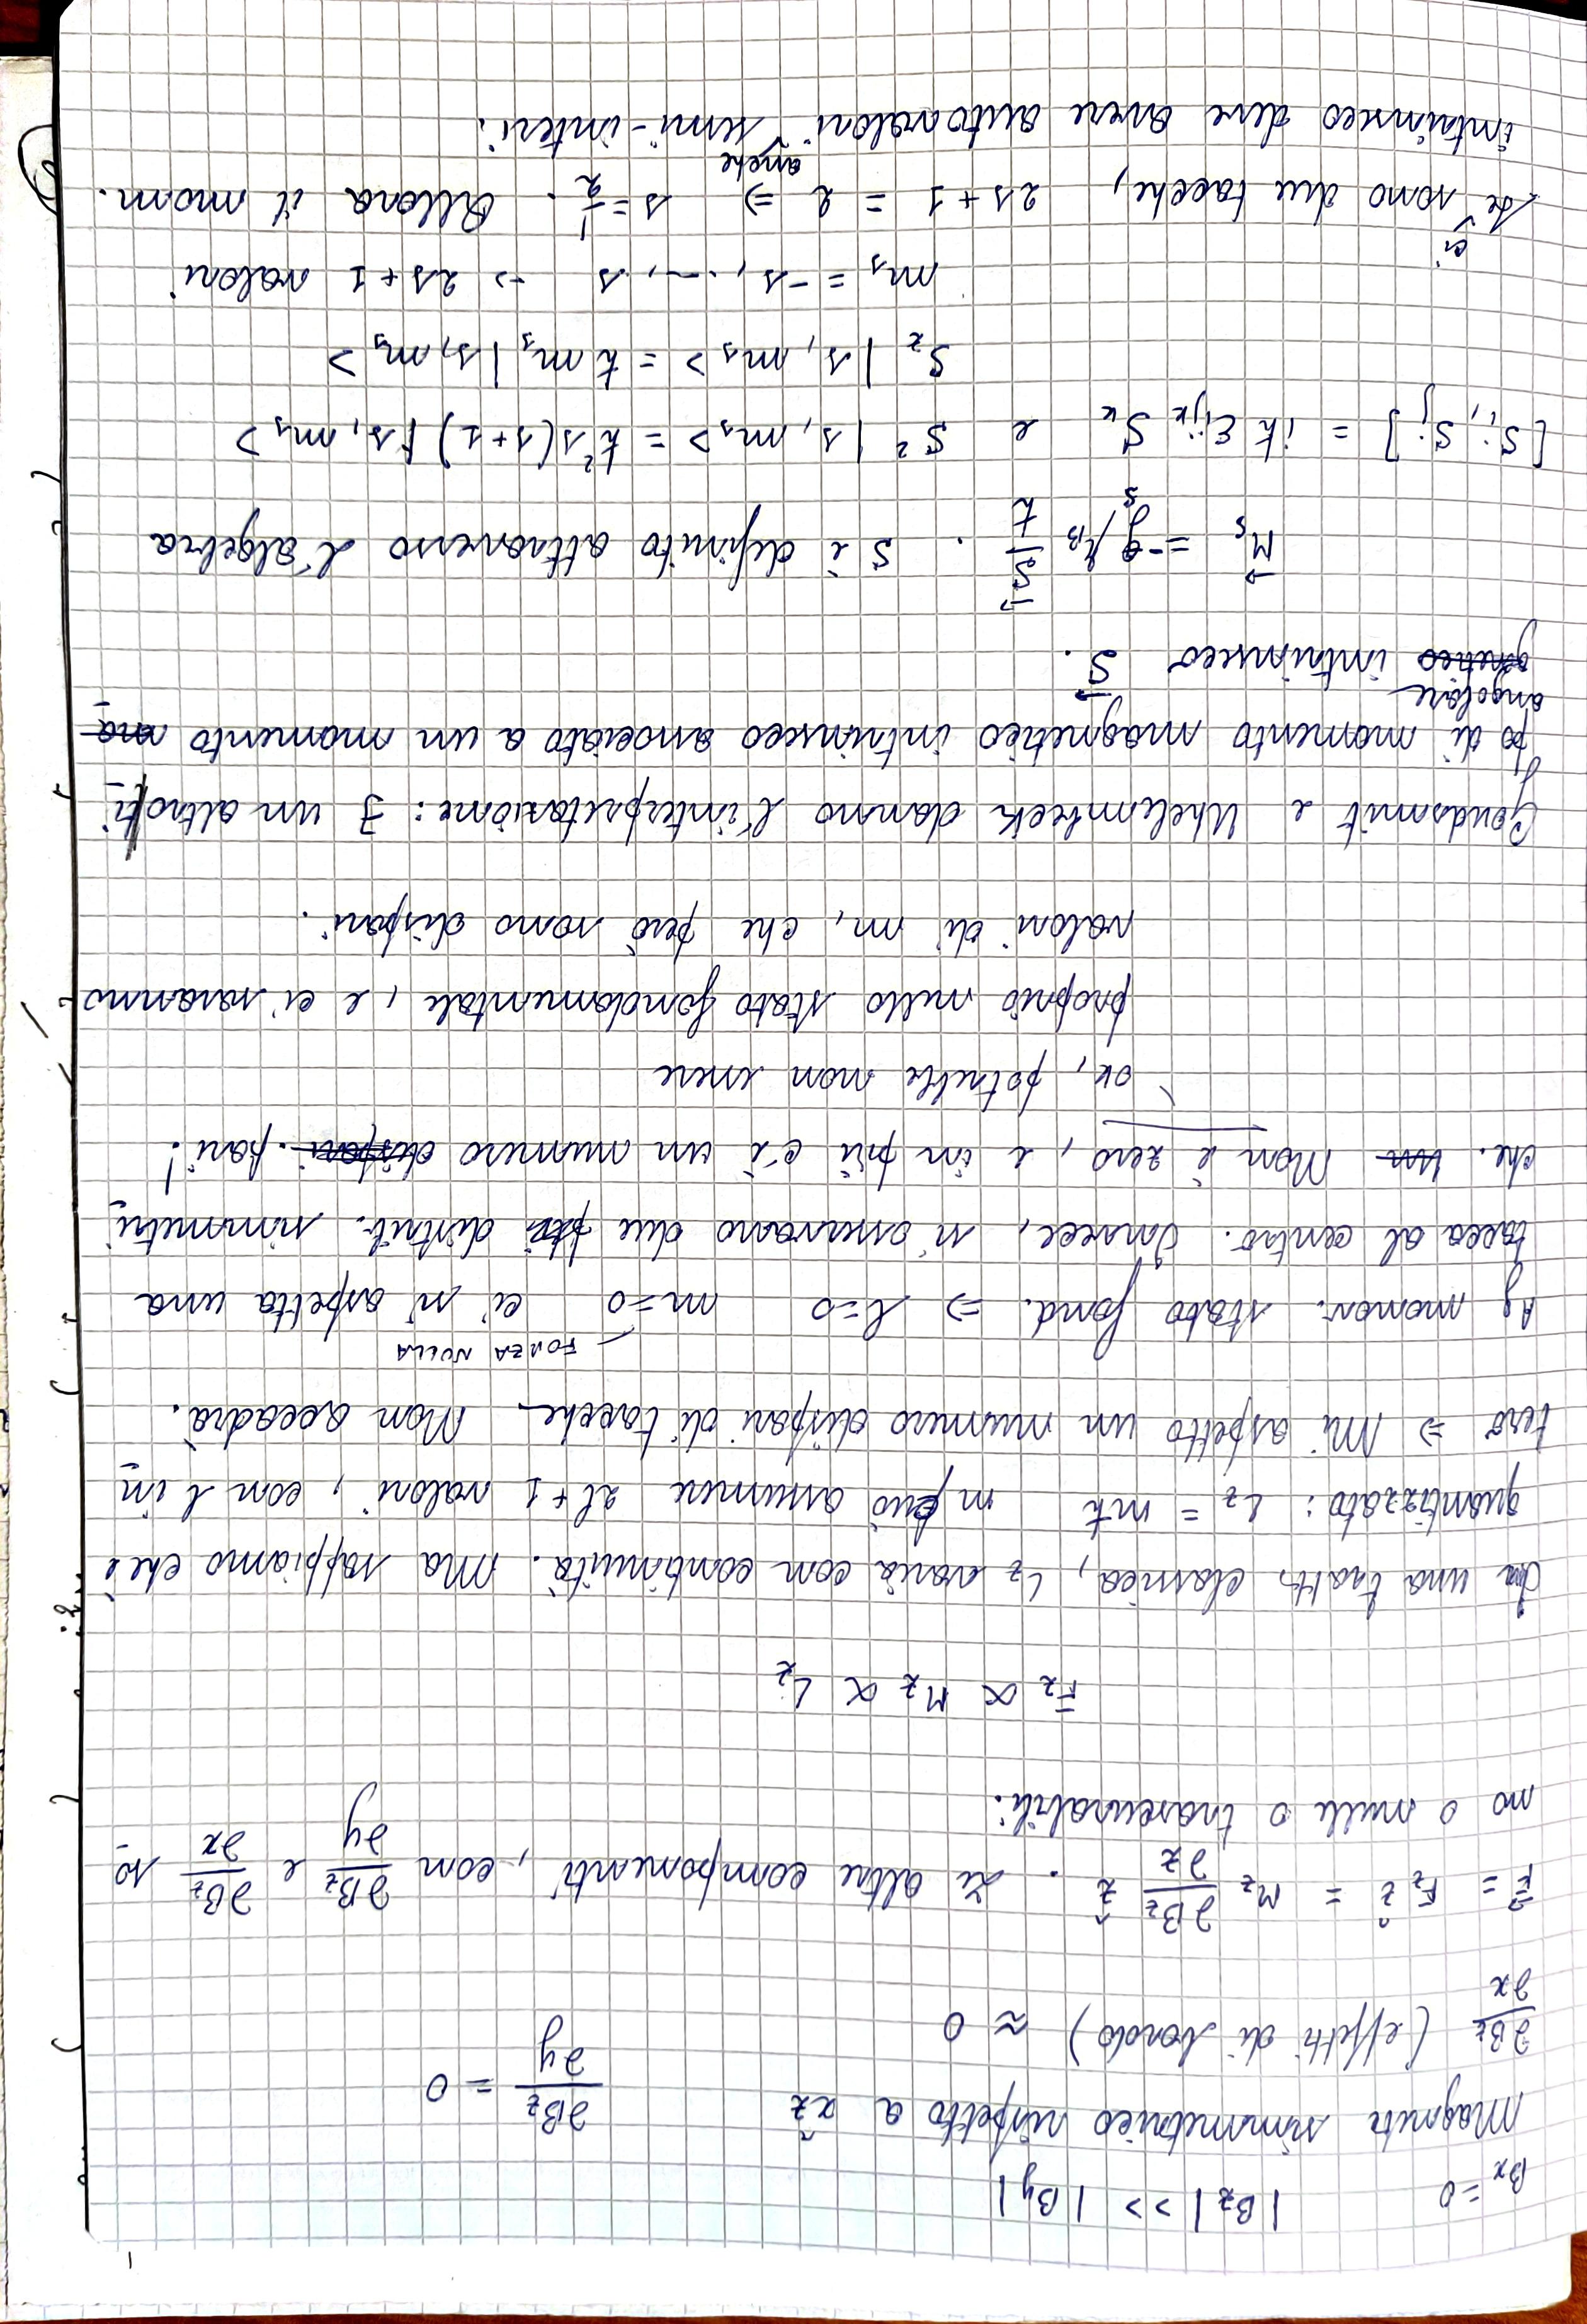 Bx = 0 |Bz| >> |By|
Magneti simmetrico rispetto a x̂z ∂Bz/∂y = 0
∂Bz/∂x (effetti di bordo) ≈ 0
F⃗ = Fz ẑ = Mz ∂Bz/∂z ẑ . Le altre componenti, con ∂Bz/∂y e ∂Bz/∂x so
no o nulle o trascurabili.
Fz ∝ Mz ∝ Lz
In una tratt. classica, Lz varia con continuità. Ma sappiamo che è
quantizzato: Lz = mħ m può assumere 2l+1 valori, con l in
tero => Mi aspetto un numero dispari di tacche. Non accadrà.
FORZA NULLA
Ag monov. stato fond. => l=0 m=0 ci si aspetta una
tacca al centro. Invece, si osservano due distrib. simmetri
che. Non è zero, e in più c'è un numero dispari. pari!
ok, potrebbe non essere
proprio nello stato fondamentale, e ci saranno
valori di m, che però sono dispari.
Goudsmit e Uhelembeck danno l'interpretazione: ∃ un altro ti
po di momento magnetico intrinseco associato a un momento ma
angolare
gnetico intrinseco S⃗.
M⃗s = -gs μB S⃗/ħ . S è definito attraverso l'algebra
[Si, Sj] = iħ εijk Sk e S² |s, ms> = ħ² s(s+1) |s, ms>
Sz |s, ms> = ħ ms |s, ms>
ms = -s, ..., s -> 2s+1 valori
Se ci sono due tacche, 2s+1 = 2 => s = 1/2 . Allora il mom.
intrinseco deve avere anche autovalori semi-interi.